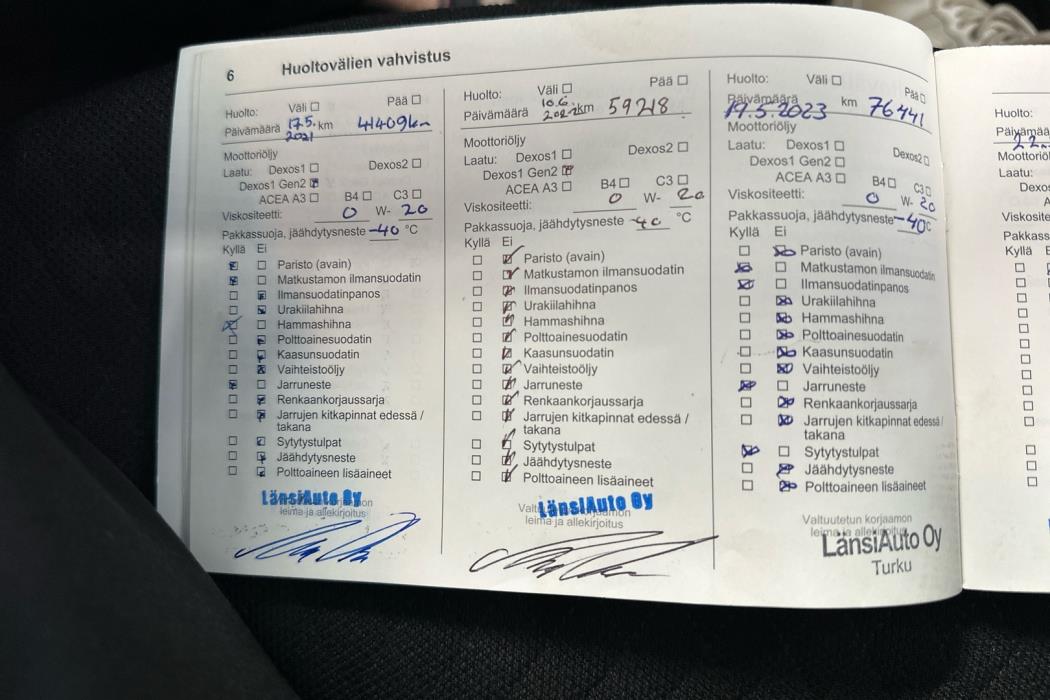 6 Huoltovälien vahvistus
Huolto: Väli Pää
Päivämäärä 17.5. 2021 km 41409km
Moottoriöljy
Laatu: Dexos1 Dexos2
Dexos1 Gen2
ACEA A3 B4 C3
Viskositeetti: 0 W- 20
Pakkassuoja, jäähdytysneste -40 °C
Kyllä Ei
Paristo (avain)
Matkustamon ilmansuodatin
Ilmansuodatinpanos
Urakiilahihna
Hammashihna
Polttoainesuodatin
Kaasunsuodatin
Vaihteistoöljy
Jarruneste
Renkaankorjaussarja
Jarrujen kitkapinnat edessä /
takana
Sytytystulpat
Jäähdytysneste
Polttoaineen lisäaineet
LänsiAuto Oy
leima ja allekirjoitus
Huolto: Väli Pää
Päivämäärä 10.6. 2022 km 59218
Moottoriöljy
Laatu: Dexos1 Dexos2
Dexos1 Gen2
ACEA A3 B4 C3
Viskositeetti: 0 W- 20
Pakkassuoja, jäähdytysneste -40 °C
Kyllä Ei
Paristo (avain)
Matkustamon ilmansuodatin
Ilmansuodatinpanos
Urakiilahihna
Hammashihna
Polttoainesuodatin
Kaasunsuodatin
Vaihteistoöljy
Jarruneste
Renkaankorjaussarja
Jarrujen kitkapinnat edessä /
takana
Sytytystulpat
Jäähdytysneste
Polttoaineen lisäaineet
LänsiAuto Oy
leima ja allekirjoitus
Huolto: Väli Pää
Päivämäärä 17.5.2023 km 76441
Moottoriöljy
Laatu: Dexos1 Dexos2
Dexos1 Gen2
ACEA A3 B4 C3
Viskositeetti: 0 W- 20
Pakkassuoja, jäähdytysneste -40°C
Kyllä Ei
Paristo (avain)
Matkustamon ilmansuodatin
Ilmansuodatinpanos
Urakiilahihna
Hammashihna
Polttoainesuodatin
Kaasunsuodatin
Vaihteistoöljy
Jarruneste
Renkaankorjaussarja
Jarrujen kitkapinnat edessä /
takana
Sytytystulpat
Jäähdytysneste
Polttoaineen lisäaineet
Valtuutetun korjaamon
leima ja allekirjoitus
LänsiAuto Oy
Turku
Huolto:
Laatu:
Kyllä